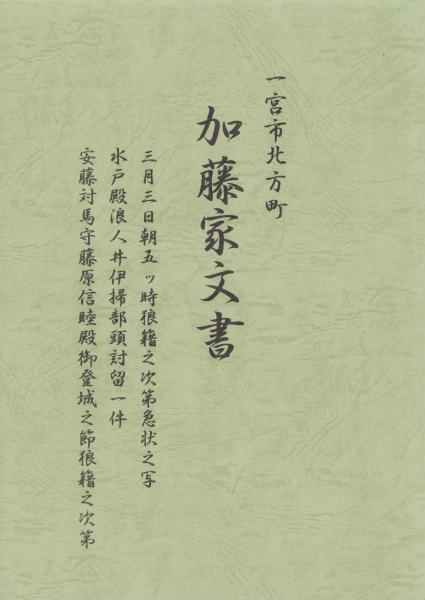 一宮市北方町
加藤家文書
三月三日朝五ッ時狼籍之次第急状之写
水戸殿浪人井伊掃部頭討留一件
安藤対馬守藤原信睦殿御登城之節狼籍之次第